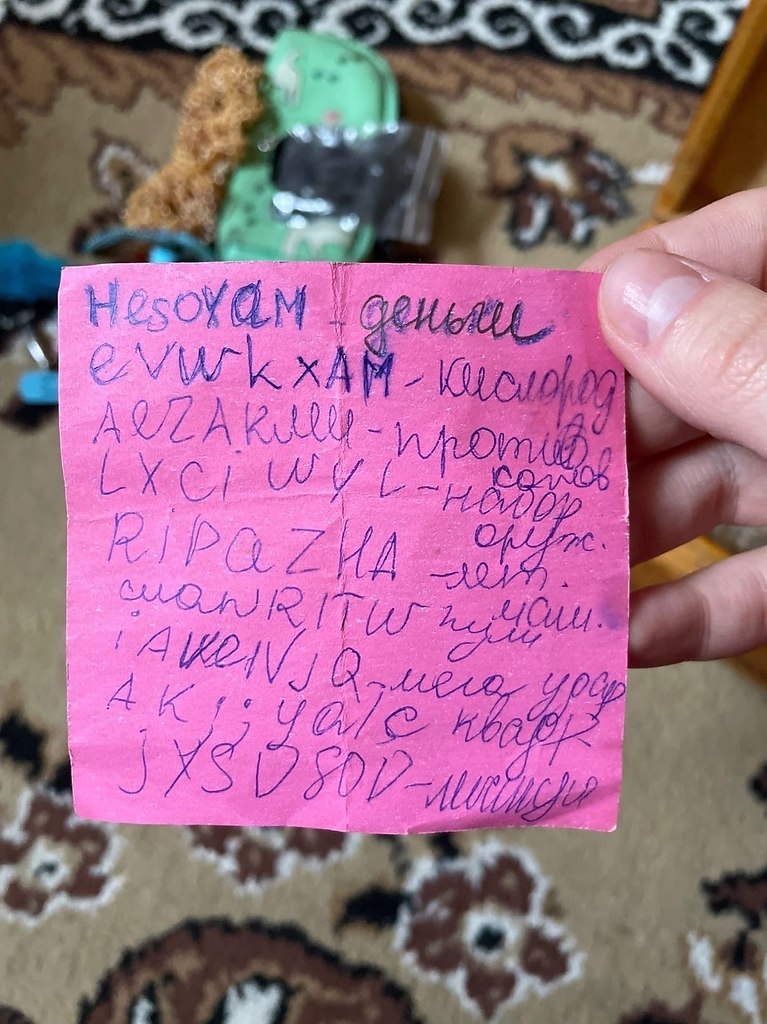 HesoYaM - деньги
evwkxAM - кислород
AezAкми - против копов
LXCiWYL - набор оруж.
RiPaZHA - лет. маш.
wanRLTW пули
iAveNjQ - мега удар
AKjjyatc квадр
jYSDSOD -